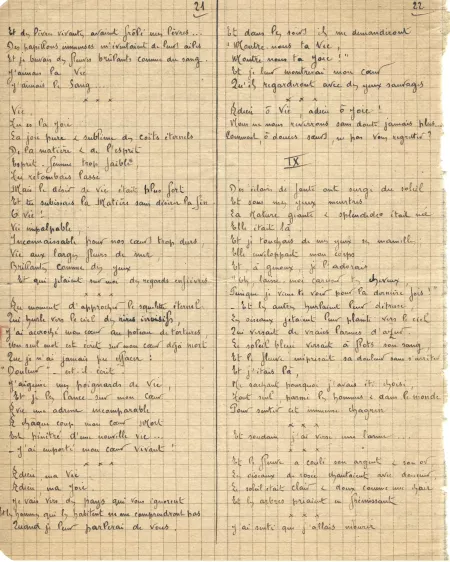 21
Et de lèvres vivantes avaient frôlé mes lèvres...
Des papillons immenses m'éventaient de leurs ailes
Et je buvais des fleuves brûlants comme du sang.
J'aimais la Vie
J'aimais le Sang
* * *
Vie
Tu es la joie
La joie pure & sublime des coïts éternels
De la matière & de l'esprit
Esprit, femme trop faible
Tu retombais lasse
Mais le désir de vie était plus fort
Et tu subissais la Matière sans désirer la fin
O Vie!
Vie impalpable,
Inconnaissable pour nos cœurs trop durs
Vie aux larges fleurs de mer,
Brillants comme des yeux
Et qui jetaient sur moi des regards enfiévrés
* * *
Au moment d'approcher le squelette éternel
Qui hurle vers le ciel des rires
J'ai accroché mon cœur au poteau de tortures
Un seul mot est écrit sur mon cœur déjà mort
Que je n'ai jamais pu effacer:
"Douleur" est-il écrit
J'aiguise mes poignards de Vie,
Et je les lance sur mon cœur
Avec une adresse incomparable
A chaque coup mon cœur Mort
Est pénétré d'une nouvelle vie...
- J'ai emporté mon cœur Vivant!
* * *
Adieu ma Vie
Adieu ma Joie
Je vais vers des pays qui vous ignorent
Et les hommes qui les habitent ne me comprendront pas
Quand je leur parlerai de vous.
22
Et dans les soirs ils me demanderont
"Montre nous ta Vie,
Montre nous ta Joie!"
Et je leur montrerai mon cœur
Qu'ils regarderont avec des yeux sauvages
* * *
Adieu ô Vie, adieu ô Joie!
Nous ne nous reverrons sans doute jamais plus
Comment, ô douces sœurs, ne pas vous regretter?
IX
Des éclairs de ont surgi du soleil
Et sous mes yeux meurtris
La Nature géante & splendide était nue
Elle était là
Et je touchais de mes yeux sa mamelle
Elle enveloppait mon corps
Et à genoux je l'adorais
"Ah, laisse moi caresser tes cheveux
Puisque je vais te voir pour la dernière fois!"
Et les arbres hurlaient leur détresse
Les oiseaux jetaient leur plainte vers le ciel
Qui versait de vraies larmes d'azur
Le soleil bleui versait à flots son sang
Et le fleuve méprisait sa douleur sans s'arrêter
Et j'étais là,
Ne sachant pourquoi j'avais été choisi
Tout seul parmi les hommes & dans le monde
Pour sentir cet immense chagrin
* * *
Et soudain j'ai versé une larme...
* * *
Et le fleuve a coulé son argent & son or
Les oiseaux de rose chantaient avec douceur
Le soleil était clair & doux comme une chair
Et les arbres priaient en frémissant
* * *
J'ai senti que j'allais mourir